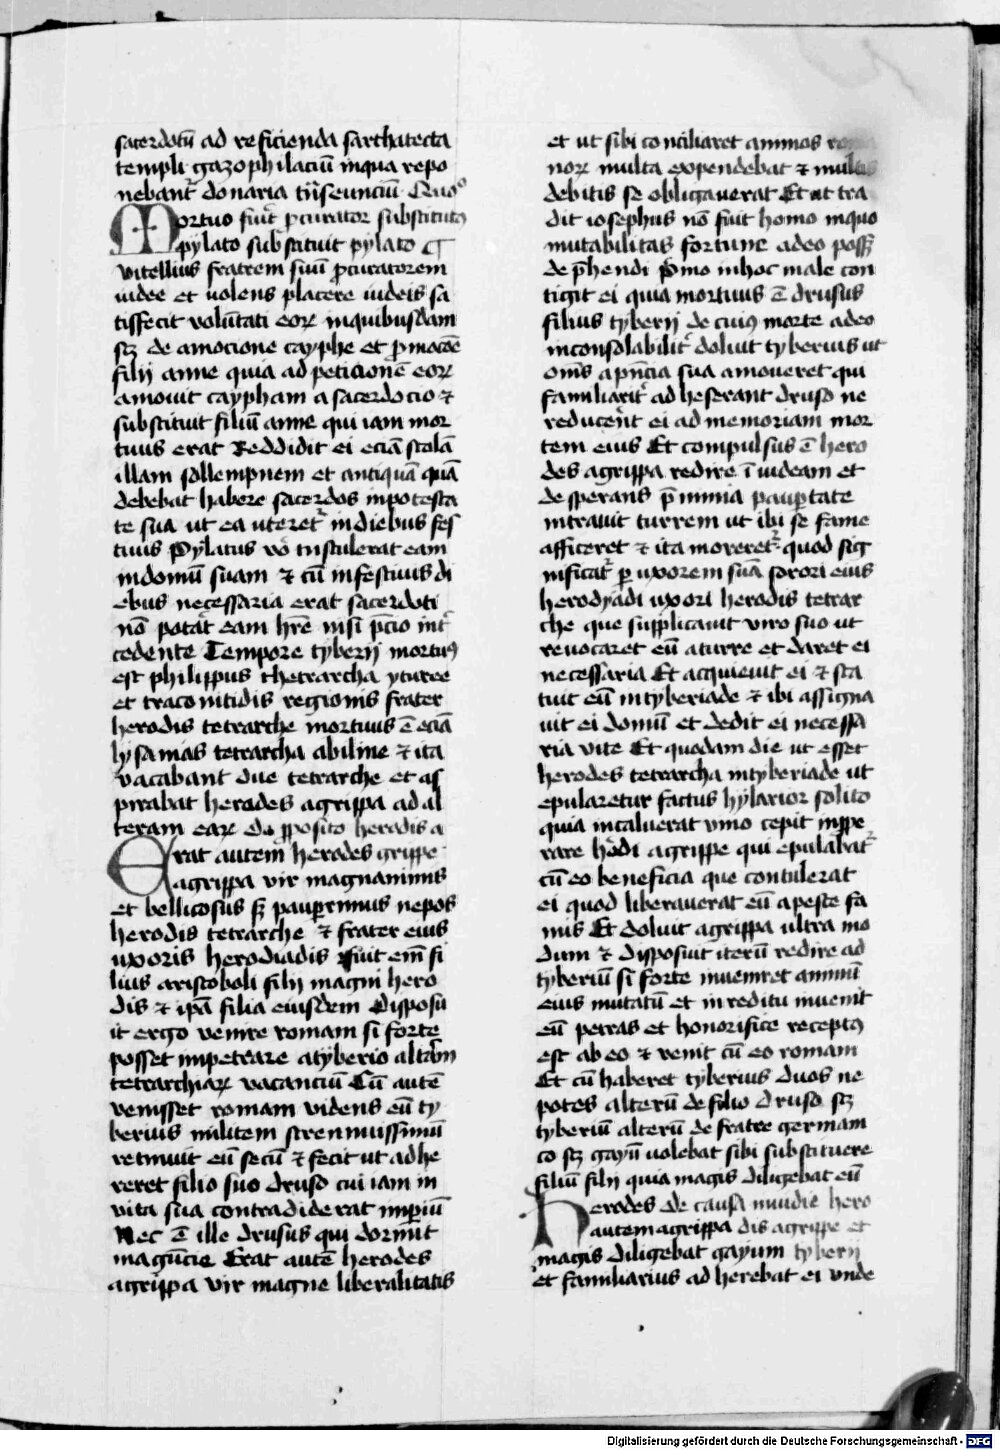 sacerdotū ad reficienda sarthatecta
templi gazophilaciū inqua repo
nebant᷑ donaria tn̄seunciū Quos
Mortuo fuit᷑ ꝓcurator substitutꝰ
pylato substituit pylato ¶
vitellius fratrem suū ꝓcuratorem
iudee et uolens placere iudeis sa
tisfecit volūtati eoꝝ inquibusdam
scꝫ de amocione cayphe et ꝓmocōe
filij anne quia ad peticionē eoꝝ
amouit caypham a sacerdocio ⁊
substituit filiū anne qui iam mor
tuus erat Reddidit ei eciā stolā
illam sollempnem et antiquā quā
debebat habere sacerdos inpotesta
te sua ut ea uteret᷑ indiebus fes
tiuis Pylatus vō tn̄stulerat eam
indomū suam ⁊ cū infestiuis di
ebus necessaria erat sacerdoti
nō potat᷑ eam hr̄e nisi p̄cio int᷑
cedente Tempore tyberij mortuꝰ
est philippus thetrarcha yturee
et traconitidis regionis frater
herodis tetrarche mortuus ē eciā
lysanias tetrarcha abiline ⁊ ita
vacabant due tetrarche et as
pirabat herodes agrippa ad al
teram eaꝝ De ꝓposito herodis a
Erat autem herodes grippe
agrippa vir magnanimis
et bellicosus sꝫ pauꝑrimus nepos
herodis tetrarche ⁊ frater eius
uxoris herodiadis fuit em̄ fi
lius aristoboli filij magni hero
dis ⁊ ip̄a filia eiusdem Disposu
it ergo venire romam si forte
posset impetrare atyberio alt᷑am
tetrarchiaꝝ vacanciū Cū autē
venisset romam videns eū ty
berius militem strennuissimū
retinuit eū secū ⁊ fecit ut adhe
reret filio suo druso cui iam in
vita sua contradiderat imꝑiū
Nec ē ille drusus qui dormit
magūcie Erat autē herodes
agrippa vir magne liberalitatis
et ut sibi conciliaret animos roma
noꝝ multa expendebat ⁊ multis
debitis se obligauerat Et ut tra
dit iosephus nō fuit homo inquo
mutabilitas fortune adeo possꝫ
dep̄hendi P̄mo inhoc male con
tigit ei quia mortuus ē drusus
filius tyberij de cuiꝰ morte adeo
inconsolabilit᷑ doluit tyberius ut
om̄s ap̄ncia sua amoueret qui
familiarit᷑ adheserant druso ne
reducer̄nt ei ad memoriam mor
tem eius Et compulsus ē hero
des agrippa redire ī iudeam et
desperans p̄ nimia pauꝑtate
intrauit turrem ut ibi se fame
afficeret ⁊ ita moreret᷑ quod sig
nificat᷑ ꝑ uxorem suā sorori eius
herodyadi uxori herodis tetrar
che que supplicauit viro suo ut
reuocaret eū aturre et daret ei
necessaria Et acquieuit ei ⁊ sta
tuit eū intyberiade ⁊ ibi assigna
uit ei domū et dedit ei necessa
ria vite Et quodam die ut esset
herodes tetrarcha intyberiade ut
epularetur factus hylarior solito
quia incaluerat vino cepit impe
rare h̄odi agrippe qui epulabat᷑
cū eo beneficia que contulerat
ei quod liberauerat eū apeste fa
mis Et doluit agrippa ultra mo
dum ⁊ disposuit iterū redire ad
tyberiū si forte inueniret animū
eius mutatū et inreditu inuenit
eū petras et honorifice receptꝰ
est ab eo ⁊ venit cū eo romam
Et cū haberet tyberius duos ne
potes alterū de filio druso scꝫ
tyberiū alterū de fratre germani
co scꝫ gayū uolebat sibi substituere
filiū filij quia magis diligebat eū
Herodes De causa inuidie hero
autem agrippa dis agrippe et
magis diligebat gayum tyberij
et familiarius adherebat ei unde
Digitalisierung gefördert durch die Deutsche Forschungsgemeinschaft - DFG